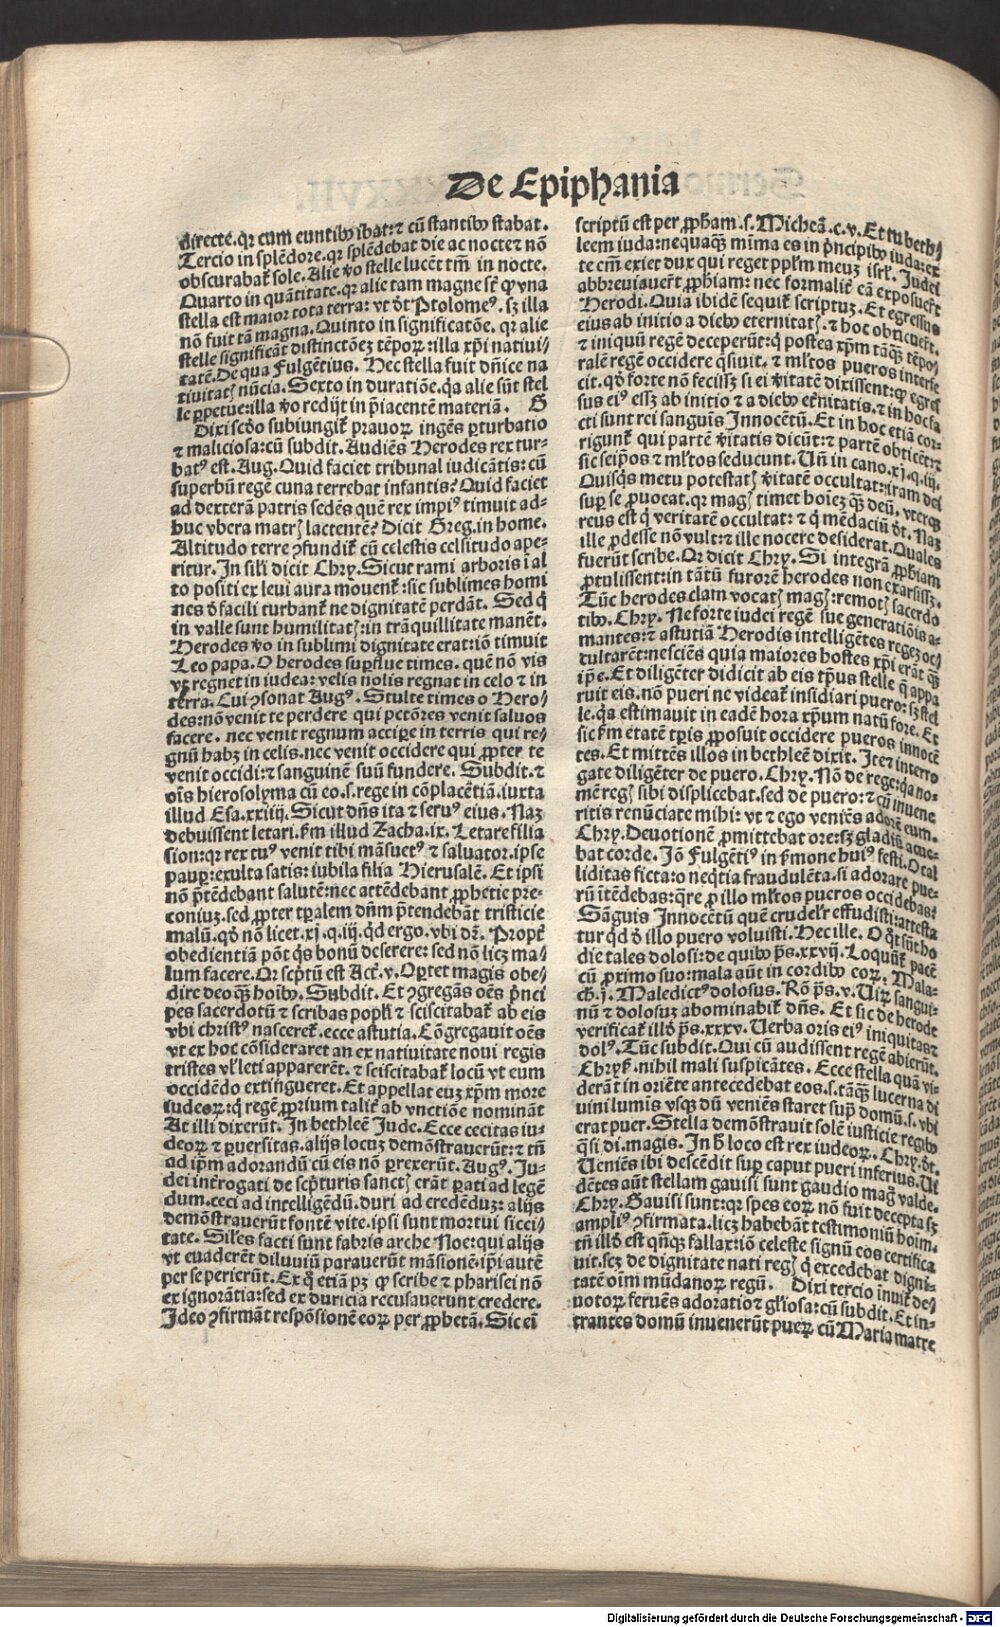 De Epiphania
directe. qꝛ cum euntibꝰ ibat: ⁊ cū stantibꝰ stabat.
Tercio in splēdore. qꝛ splēdebat die ac nocte ⁊ nō
obscurabat̃ sole. Alie ṽo stelle lucēt tm̄ in nocte.
Quarto in quātitate. qꝛ alie tam magne st̄ ꝙ vna
stella est maior tota terra: vt dt̄ Ptolomeꝰ. sꝫ illa
nō fuit tā magna. Quinto in significatōe. qꝛ alie
stelle significāt distinctōeꝫ tēpoꝝ: illa xp̄i natiui/
tatē. De qua Fulgētius. Hec stella fuit dn̄ice na
tiuitatꝭ nūcia. Sexto in duratiōe. qa alie sūt stel
le ꝑpetue: illa ṽo redijt in p̄iacentē materiā. G
Dixi scd̄o subiungit̃ prauoꝝ ingēs ꝑturbatio
⁊ maliciosa: cū subdit. Audiēs Herodes rex tur-
batꝰ est. Aug. Quid faciet tribunal iudicātis: cū
superbū regē cuna terrebat infantis? Quid faciet
ad dexterā patris sedēs quē rex impiꝰ timuit ad-
huc vbera matrꝭ lactentē? Dicit Greg. in home.
Altitudo terre ꝯfundit̃ cū celestis celsitudo ape-
ritur. In sili̇ dicit Chry. Sicut rami arboris ī al
to positi ex leui aura mouent̃: sic sublimes homi
nes d̄ facili turbant̃ ne dignitatē perdāt. Sed q̇
in valle sunt humilitatꝭ: in trāquillitate manēt.
Herodes ṽo in sublimi dignitate erat: iō timuit
Leo papa. O herodes suꝑflue times. quē nō vis
vt regnet in iudea: velis nolis regnat in celo ⁊ in
terra. Cui ꝯsonat Augꝰ. Stulte times o Hero/
des: nō venit te perdere qui pctōres venit saluos
facere. nec venit regnum acciꝑe in terris qui re/
gnū habꝫ in celis. nec venit occidere qui ꝓpter te
venit occidi: ⁊ sanguinē suū fundere. Subdit. ⁊
oīs hierosolyma cū eo. s. rege in cōplacētia. iuxta
illud Esa. xxiiij. Sicut dn̄s ita ⁊ seruꝰ eius. Naꝫ
debuissent letari. ẜm illud Zacha. ix. Letare filia
sion: qꝛ rex tuꝰ venit tibi māsuetꝰ ⁊ saluator. ipse
pauꝑ: exulta satis: iubila filia Hierusalē. Et ipsi
nō p̄tēdebant salutē: nec attēdebant ꝓphetie pre-
coniuꝫ. sed ꝓpter tꝑalem dn̄m p̄tendebāt tristicie
malū. qd̄ nō licet. xj. q. iij. qd̄ ergo. vbi dr̄. Propt̃
obedientiā pōt q̇s bonū deserere: sed nō licꝫ ma/
lum facere. Or sc̄ptū est Act̃. v. Oꝑtet magis obe/
dire deo qꝫ hoībꝰ. Subdit. Et ꝯgregās oēs p̄nci
pes sacerdotū ⁊ scribas popli̇ ⁊ sciscitabat̃ ab eis
vbi christꝰ nasceret̃. ecce astutia. Cōgregauit oēs
vt ex hoc cōsideraret an ex natiuitate noui regis
tristes vl̓ leti apparerēt. ⁊ sciscitabat̃ locū vt eum
occidēdo extīngueret. Et appellat euꝫ xp̄m more
iudeoꝝ: q̇ regē ꝓprium talit̃ ab vnctiōe nomināt
At illi dixerūt. In bethleē Jude. Ecce cecitas iu-
deoꝝ ⁊ ꝑuersitas. alijs locuꝫ demōstrauerūt: ⁊ tn̄
ad ip̄m adorandū cū eis nō ꝑrexerūt. Augꝰ. Ju-
dei int̃rogati de sc̄pturis sanctꝭ erāt ꝑati ad legē
dum. ceci ad intelligēdū. duri ad credēduꝫ: alijs
demōstrauerūt fontē vite. ipsi sunt mortui sicci/
tate. Siles facti sunt fabris arche Noe: qui alijs
vt euaderēt diluuiū parauerūt māsionē. ip̄i autē
per se perierūt. Ex q̊ etiā pꝫ ꝙ scribe ⁊ pharisei nō
ex ignorātia: sed ex duricia recusauerunt credere.
Ideo ꝯfirmāt respōsionē eoꝝ per ꝓphetā. Sic eī
scriptū est per ꝓpham. s. Micheā. c. v. Et tu beth/
leem iuda: nequaqꝫ mīma es in p̄ncipibꝰ iuda: ex
te em̄ exiet dux qui reget ppl̄m meuꝫ isrl̓. Judei
abbreviauer̄t ꝓphiam: nec formalit̃ eā exposuer̄t
Herodi. Quia ibidē sequit̃ scriptuꝫ. Et egressus
eius ab initio a diebꝰ eternitatꝭ. ⁊ hoc obticuer̄t.
⁊ iniquū regē deceperūt: q̇ postea xp̄m tāqꝫ tēpo/
ralē regē occidere q̄siuit. ⁊ ml̓tos pueros interfe
cit. qd̄ forte nō fecissꝫ si ei v̄itatē dixissent: ꝙ egres
sus eiꝰ essꝫ ab initio ⁊ a diebꝰ et̃nitatis. ⁊ in hoc fa
cti sunt rei sanguīs Innocētū. Et in hoc etiā cor-
rigunt̃ qui partē v̄itatis dicūt: ⁊ partē obticēt: ⁊
sic seip̄os ⁊ ml̓tos seducunt. Un̄ in cano. xj. q. iij.
Quisq̇s metu potestatꝭ v̄itatē occultat: iram dei
suꝑ se ꝓuocat. qꝛ magꝭ timet hoīeꝫ qꝫ deū. vterqꝫ
reus est q̇ veritatē occultat: ⁊ q̇ mēdaciū dt̄. Naꝫ
ille ꝓdesse nō vult: ⁊ ille nocere desiderat. Quales
fuerūt scribe. Or dicit Chry. Si integrā ꝓphiam
ꝓtulissent: in tātū furorē herodes non exarsissꝫ.
Tūc herodes clam vocatꝭ magꝭ: remotꝭ sacerdo
tibꝰ. Chry. Ne forte iudei regē sue generatiōis a-
mantes: ⁊ astutiā Herodis intelligētes regeꝫ oc/
cultarēt: nesciēs quia maiores hostes xp̄i erāt qꝫ
ip̄e. Et diligēter didicit ab eis tp̄us stelle q̄ appa
ruit eis. nō pueri ne videat̃ insidiari puero: sꝫ stel
le. qa estimauit in eadē hora xp̄um natū fore. Et
sic ẜm etatē tꝑis ꝓposuit occidere pueros innocē
tes. Et mittēs illos in bethleē dixit. Ite ⁊ interro
gate diligēter de puero. Chry. Nō de rege: qa no-
mē regꝭ sibi displicebat. sed de puero: ⁊ cū inuene
ritis renūciate mihi: vt ⁊ ego veniēs adorē eum.
Chry. Deuotionē ꝓmittebat ore: sꝫ gladiū acue-
bat corde. Iō Fulgētiꝰ in ẜmone huiꝰ festi. O cal
liditas ficta: o neq̇tia fraudulēta. si adorare pue-
rū itēdebas: q̄re ꝓ illo ml̓tos pueros occidebas?
Sāguis Innocētū quē crudelr̄ effudisti: attesta
tur qd̄ d̄ illo puero voluisti. Hec ille. O q̊t sūt ho
die tales dolosi: de quibꝰ p̄s. xxvij. Loquūt̃ pacē
cū ꝓximo suo: mala aūt in cordibꝰ eoꝝ. Mala-
ch. j. Maledictꝰ dolosus. Rō p̄s. v. Uiꝝ sangui-
nū ⁊ dolosuꝫ abominabit̃ dn̄s. Et sic de herode
verificat̃ illd̓ p̄s. xxxv. Uerba oris eiꝰ iniquitas ⁊
dolꝰ. Tūc subdit. Qui cū audissent regē abierūt.
Chryꝰ. nihil mali suspicātes. Ecce stella quā vi-
derāt in oriēte antecedebat eos. s. tāqꝫ lucerna di
uini lumīs vsqꝫ dū veniēs staret supᷓ domū. s. vbi
erat puer. Stella demōstrauit solē iusticie regibꝰ
q̄si di. magis. In h̓ loco est rex iudeoꝝ. Chry. dt̄.
Ueniēs ibi descēdit suꝑ caput pueri inferius. Ui
dētes aūt stellam gauisi sunt gaudio magꝰ valde.
Chry. Gauisi sunt: qꝛ spes eoꝝ nō fuit decepta sꝫ
ampliꝰ ꝯfirmata. licꝫ habebāt testimoniū hoīm.
tn̄ illd̓ est qn̄qꝫ fallax: iō celeste signū eos certifica
uit. scꝫ de dignitate nati regꝭ q̇ excedebat digni-
tatē oīm mūdanoꝝ regū. Dixi tercio inuit̃ de/
uotoꝝ feruēs adoratio ⁊ gl̓iosa: cū subdit. Et in-
trantes domū inuenerūt pueꝝ cū Maria matre
Digitalisierung gefördert durch die Deutsche Forschungsgemeinschaft - DFG